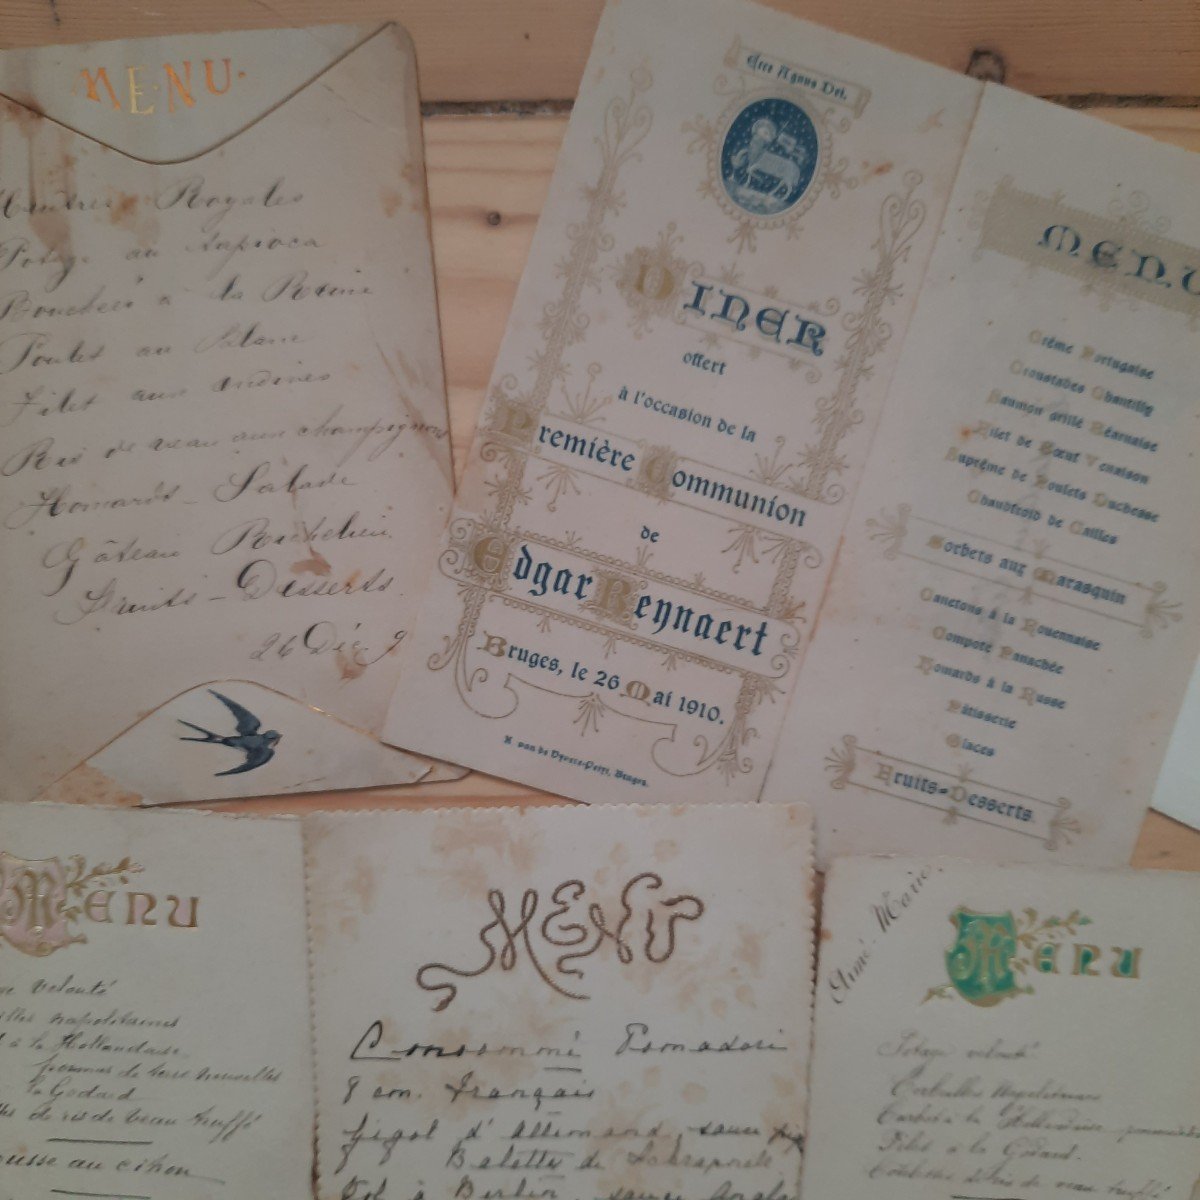 MENU.
Huitres Royales
Potage au tapioca
Bouchées à la Reine
Poulet au blanc
Filet aux
Ris de veau aux champignons
Homards - Salade
Gâteau Richelieu
Fruits - Desserts
26 Déc 9
Ecce Agnus Dei.
DINER
offert
à l'occasion de la
Première Communion
de
Edgar Reynaert
Bruges, le 26 Mai 1910.
Bruges.
MENU
Crême Portugaise
Croustades Chantilly
Saumon grillé Béarnaise
Filet de Bœuf Venaison
Suprême de Poulets Duchesse
Chaudfroid de Cailles
Sorbets aux Marasquin
Canetons à la Rouennaise
Compote Panachée
Homards à la Russe
Pâtisserie
Glaces
Fruits-Desserts
MENU
velouté
napolitaines
à la Hollandaise
pommes de terre nouvelles
la Godard
de ris de veau truffé
au citron
MENU
Consommé Pomadori
Français
gigot d'Allemand, sauce
Belette de
à Berlin, sauce
Aimé-Marie.
MENU
Potage velouté
Corbeilles napolitaines
Turbot à la Hollandaise
Filet à la Godard.
de ris de veau truffé